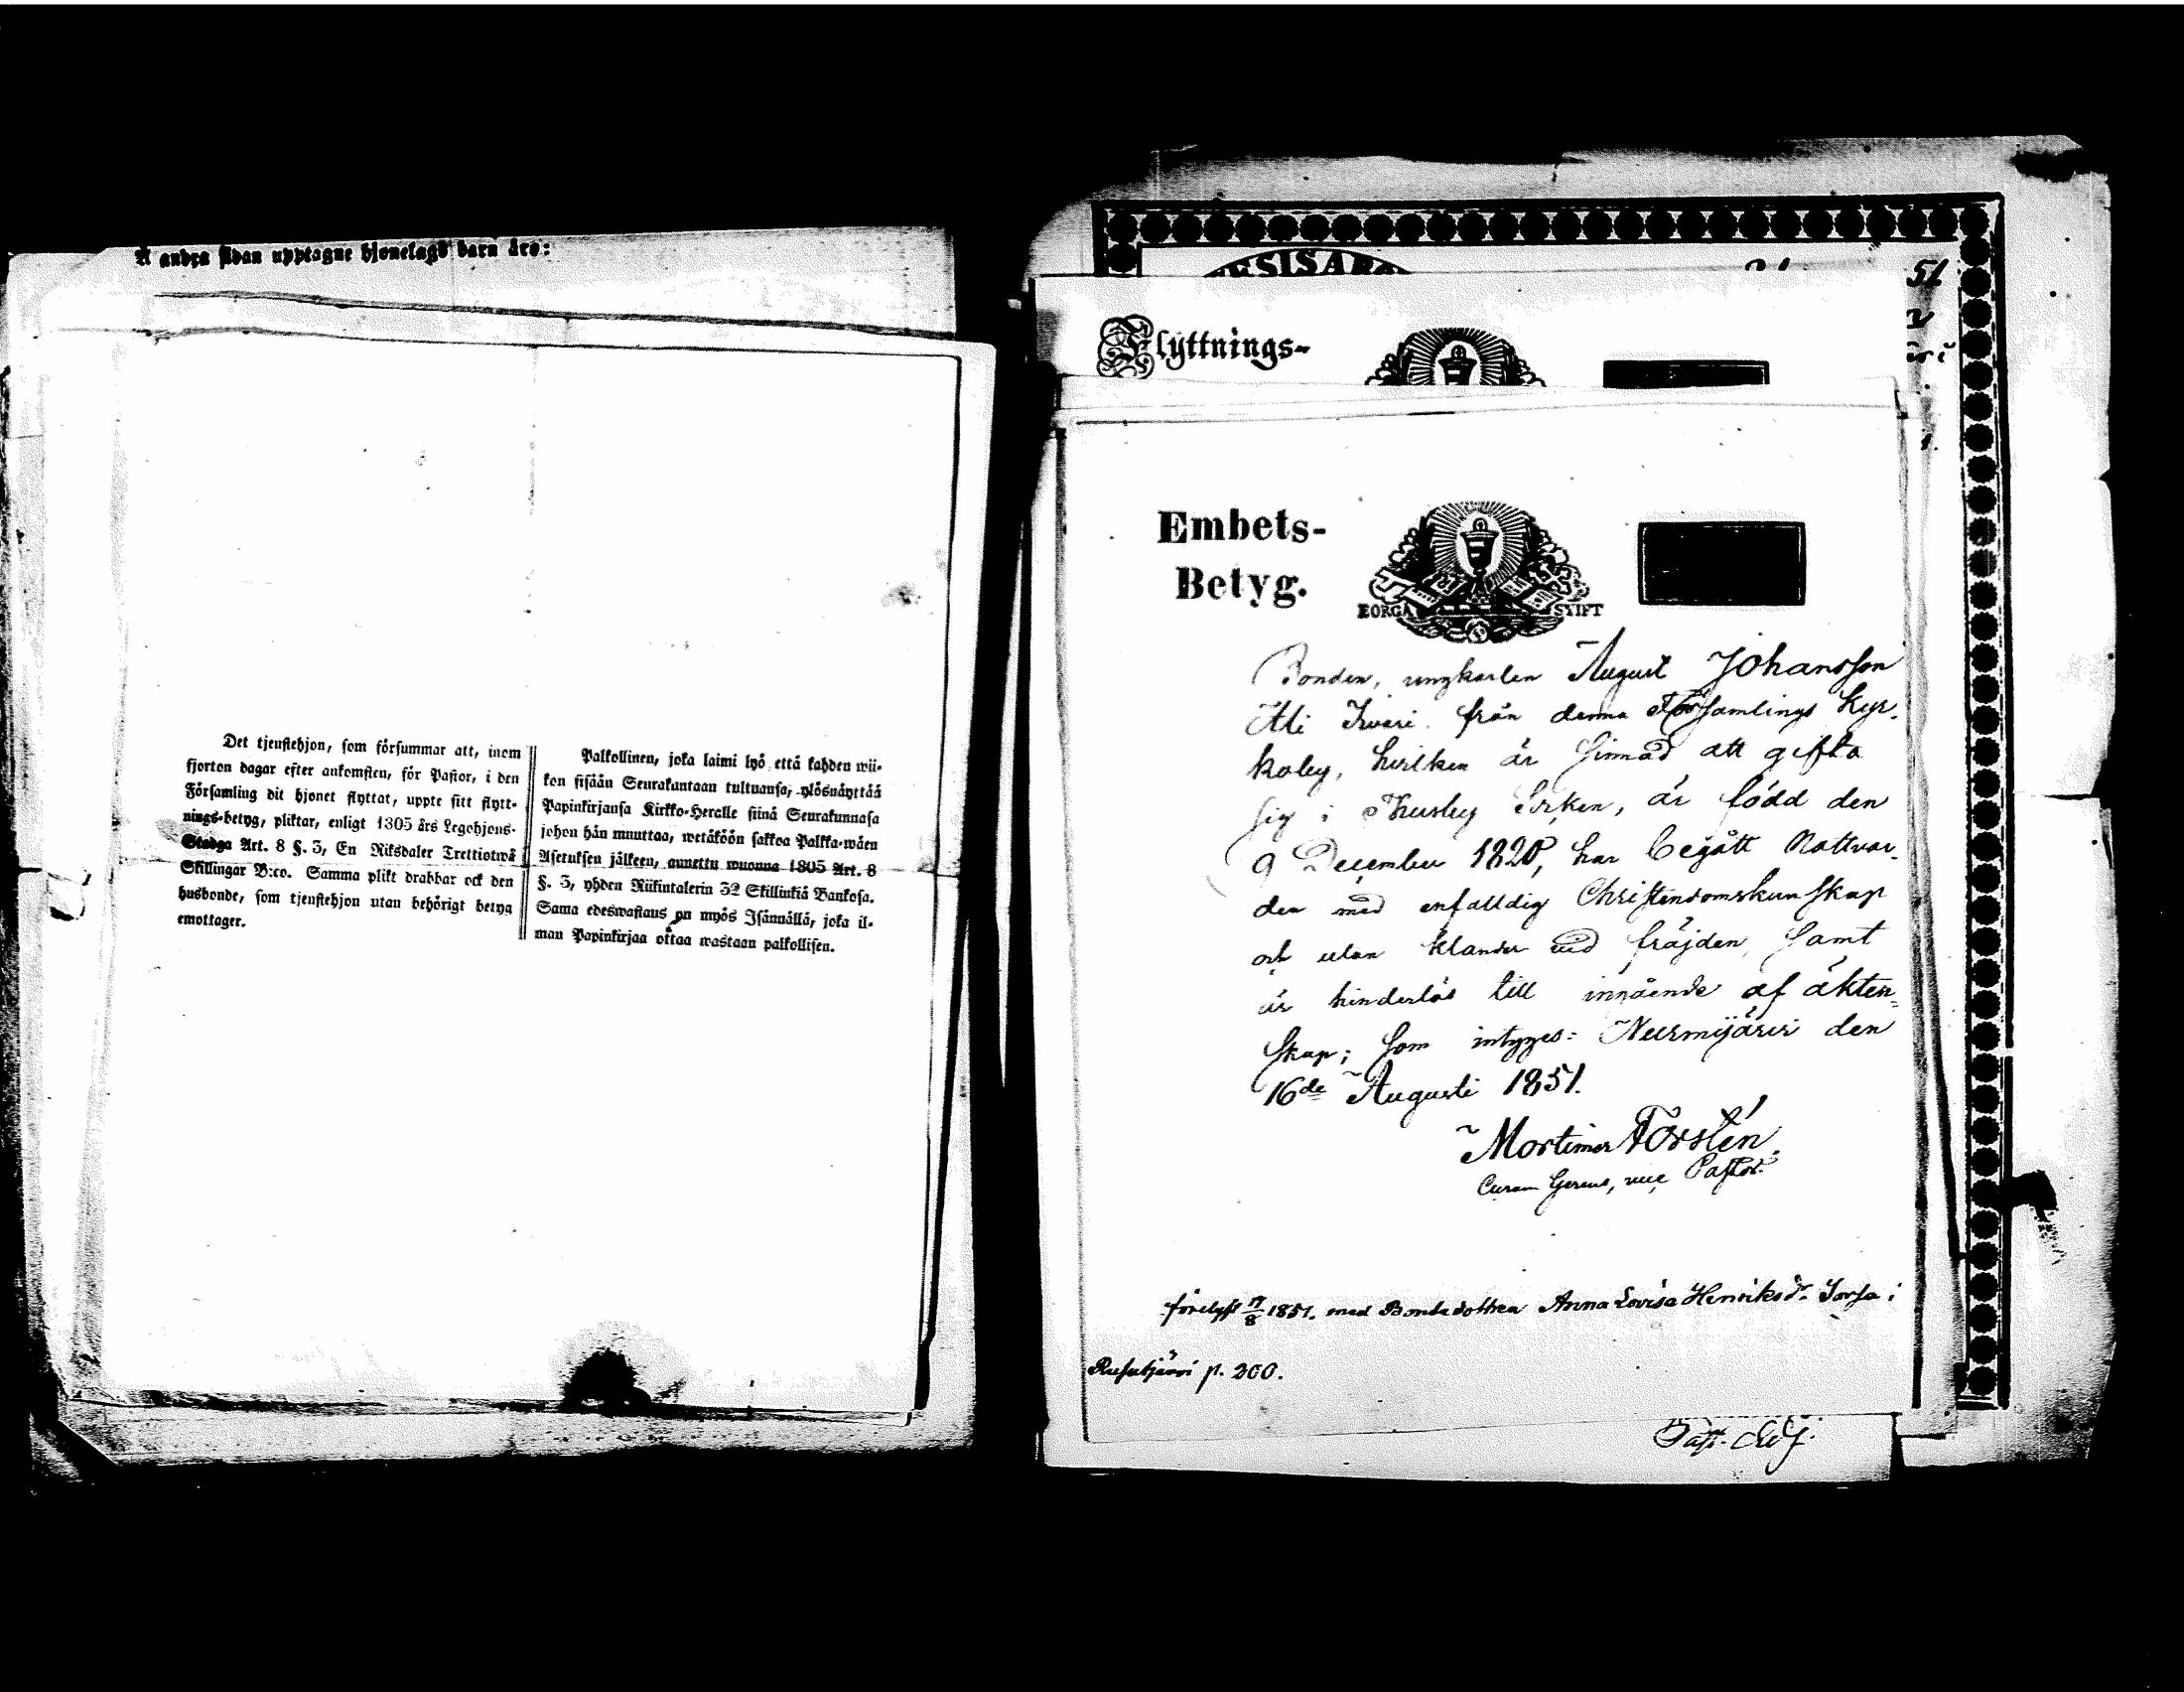 Å andra sidan upptagne hjonelags barn äro:
Det tjenstehjon, som försummar att, inom
fjorton dagar efter ankomsten, för Pastor, i den
Församling dit hjonet flyttat, uppte sitt flytt-
nings-betyg, pliktar, enligt 1805 års Legohjons-
Stadga Art. 8 §. 3, En Riksdaler Trettiotwå
Skillingar B:co. Samma plikt drabbar ock den
husbonde, som tjenstehjon utan behörigt betyg
emottager.
Palkollinen, joka laimi lyö että kahden wii-
kon sisään Seurakuntaan tultuansa, ylösnäyttää
Papinkirjansa Kirkko-Herralle siinä Seurakunnasa
johon hän muuttaa, wetäköön sakkoa Palkka-wäen
Asetuksen jälkeen, annettu wuonna 1805 Art. 8
§. 3, yhden Riikintalerin 32 Skillinkiä Bankosa.
Sama edeswastaus on myös Isännällä, joka il-
man Papinkirjaa ottaa wastaan palkollisen.
51
Flyttnings-
Embets-
Betyg.
BORGÅ STIFT
Bonden, ungkarlen August Johansson
från denna Församlings Kyr-
koby, hvilken är sinnad att gifta
sig i Thusby Socken, är född den
9 December 1828, har begått Nattvar-
den med enfalldig Christendomskunskap
och utan klander vid fräjden, samt
är hinderlös till ingående af äkten-
skap; som intygges: Nurmijärvi den
16de Augusti 1851.
Mortimer Forstén
Curam Gerens, vice Pastor.
förelyst 17/8 1851. med Bondedottren Anna Lovisa Henriksdr. i
Rusutjärvi p. 200.